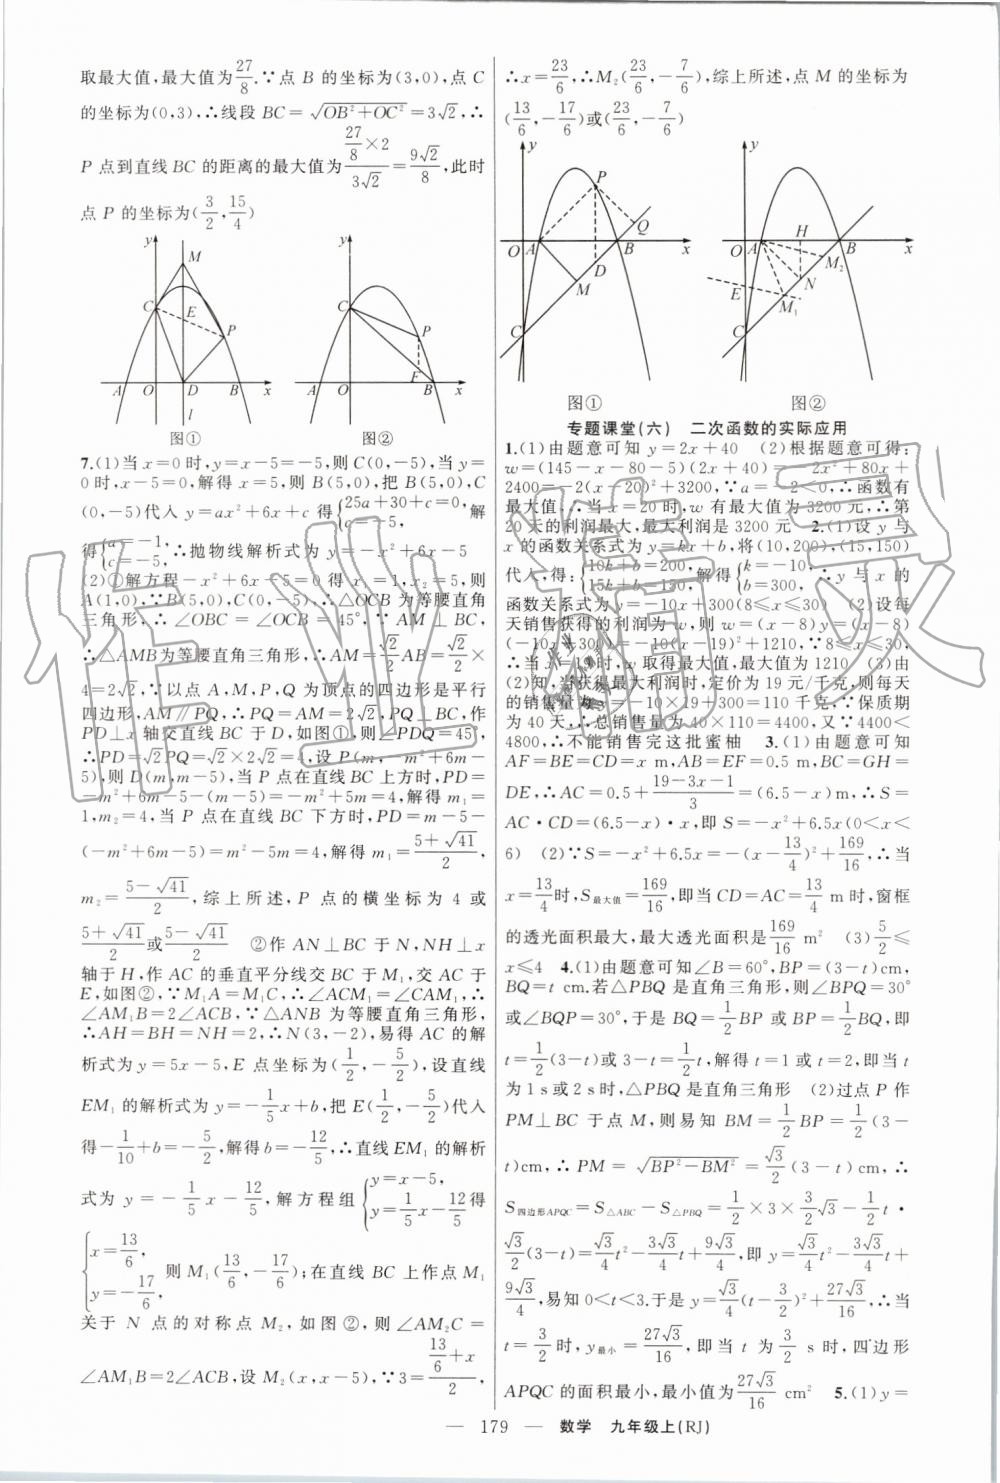 取最大值,最大值为27/8.∵点 B 的坐标为(3,0),点 C
的坐标为(0,3),∴线段 BC=√(OB²+OC²)=3√2,∴
P 点到直线 BC 的距离的最大值为(27/8×2)/(3√2)=9√2/8,此时
点 P 的坐标为(3/2,15/4)
图①
图②
7.(1)当 x=0 时,y=x-5=-5,则 C(0,-5),当 y=
0 时,x-5=0,解得 x=5,则 B(5,0),把 B(5,0),C
(0,-5)代入 y=ax²+6x+c 得{25a+30+c=0, c=-5,解
得{a=-1, c=-5,∴抛物线解析式为 y=-x²+6x-5
(2)①解方程-x²+6x-5=0 得 x₁=1,x₂=5,则
A(1,0),∵B(5,0),C(0,-5),∴△OCB 为等腰直角
三角形,∴∠OBC=∠OCB=45°,∵AM⊥BC,
∴△AMB为等腰直角三角形,∴AM=√2/2AB=√2/2×
4=2√2,∵以点 A,M,P,Q 为顶点的四边形是平行
四边形,AM∥PQ,∴PQ=AM=2√2,PQ⊥BC,作
PD⊥x 轴交直线 BC 于 D,如图①,则∠PDQ=45°,
∴PD=√2PQ=√2×2√2=4,设 P(m,-m²+6m-
5),则 D(m,m-5),当 P 点在直线 BC 上方时,PD=
-m²+6m-5-(m-5)=-m²+5m=4,解得 m₁=
1,m₂=4,当 P 点在直线 BC 下方时,PD=m-5-
(-m²+6m-5)=m²-5m=4,解得 m₁=(5+√41)/2,
m₂=(5-√41)/2,综上所述,P 点的横坐标为 4 或
(5+√41)/2或(5-√41)/2 ②作 AN⊥BC 于 N,NH⊥x
轴于 H,作 AC 的垂直平分线交 BC 于 M₁,交 AC 于
E,如图②,∵M₁A=M₁C,∴∠ACM₁=∠CAM₁,∴
∠AM₁B=2∠ACB,∵△ANB 为等腰直角三角形,
∴AH=BH=NH=2,∴N(3,-2),易得 AC 的解
析式为 y=5x-5,E 点坐标为(1/2,-5/2),设直线
EM₁ 的解析式为 y=-1/5x+b,把 E(1/2,-5/2)代入
得-1/10+b=-5/2,解得b=-12/5,∴直线EM₁ 的解析
式为 y=-1/5x-12/5,解方程组{y=x-5, y=-1/5x-12/5得
{x=13/6, y=-17/6,则 M₁(13/6,-17/6);在直线 BC 上作点 M₁
关于 N 点的对称点 M₂,如图②,则∠AM₂C=
∠AM₁B=2∠ACB,设 M₂(x,x-5),∵3=(13/6+x)/2,
∴x=23/6,∴M₂(23/6,-7/6),综上所述,点 M 的坐标为
(13/6,-17/6)或(23/6,-7/6)
图①
图②
专题课堂(六) 二次函数的实际应用
1.(1)由题意可知 y=2x+40 (2)根据题意可得:
w=(145-x-80-5)(2x+40)=-2x²+80x+
2400=-2(x-20)²+3200,∵a=-2<0,∴函数有
最大值,∴当 x=20 时,w 有最大值为 3200 元,∴第
20 天的利润最大,最大利润是 3200 元 2.(1)设 y 与
x 的函数关系式为 y=kx+b,将(10,200),(15,150)
代入,得:{10k+b=200, 15k+b=150,解得{k=-10, b=300,∴y 与 x 的
函数关系式为 y=-10x+300(8≤x≤30) (2)设每
天销售获得的利润为 w,则 w=(x-8)y=(x-8)
(-10x+300)=-10(x-19)²+1210,∵8≤x≤30,
∴当 x=19 时,w 取得最大值,最大值为 1210 (3)由
(2)知,当获得最大利润时,定价为 19 元/千克,则每天
的销售量为 y=-10×19+300=110 千克,∵保质期
为 40 天,∴总销售量为 40×110=4400,又∵4400<
4800,∴不能销售完这批蜜柚 3.(1)由题意可知
AF=BE=CD=x m,AB=EF=0.5 m,BC=GH=
DE,∴AC=0.5+(19-3x-1)/3=(6.5-x)m,∴S=
AC·CD=(6.5-x)·x,即 S=-x²+6.5x(0<x<
6) (2)∵S=-x²+6.5x=-(x-13/4)²+169/16,∴当
x=13/4时,S最大值=169/16,即当 CD=AC=13/4 m 时,窗框
的透光面积最大,最大透光面积是169/16 m² (3)5/2≤
x≤4 4.(1)由题意可知∠B=60°,BP=(3-t)cm,
BQ=t cm.若△PBQ 是直角三角形,则∠BPQ=30°
或∠BQP=30°,于是 BQ=1/2BP 或 BP=1/2BQ,即
t=1/2(3-t)或 3-t=1/2t,解得 t=1 或 t=2,即当 t
为 1 s 或 2 s 时,△PBQ 是直角三角形 (2)过点 P 作
PM⊥BC 于点 M,则易知 BM=1/2BP=1/2(3-
t)cm,∴PM=√(BP²-BM²)=√3/2(3-t)cm,∴
S四边形APQC=S△ABC-S△PBQ=1/2×3×3/2√3-1/2t·
√3/2(3-t)=√3/4t²-3√3/4t+9√3/4,即 y=√3/4t²-3√3/4t+
9√3/4,易知 0<t<3.于是 y=√3/4(t-3/2)²+27√3/16,∴当
t=3/2时,y最小=27√3/16,即当 t 为3/2 s 时,四边形
APQC 的面积最小,最小值为27√3/16 cm² 5.(1)y=
— 179 — 数学 九年级上(RJ)
作业精灵